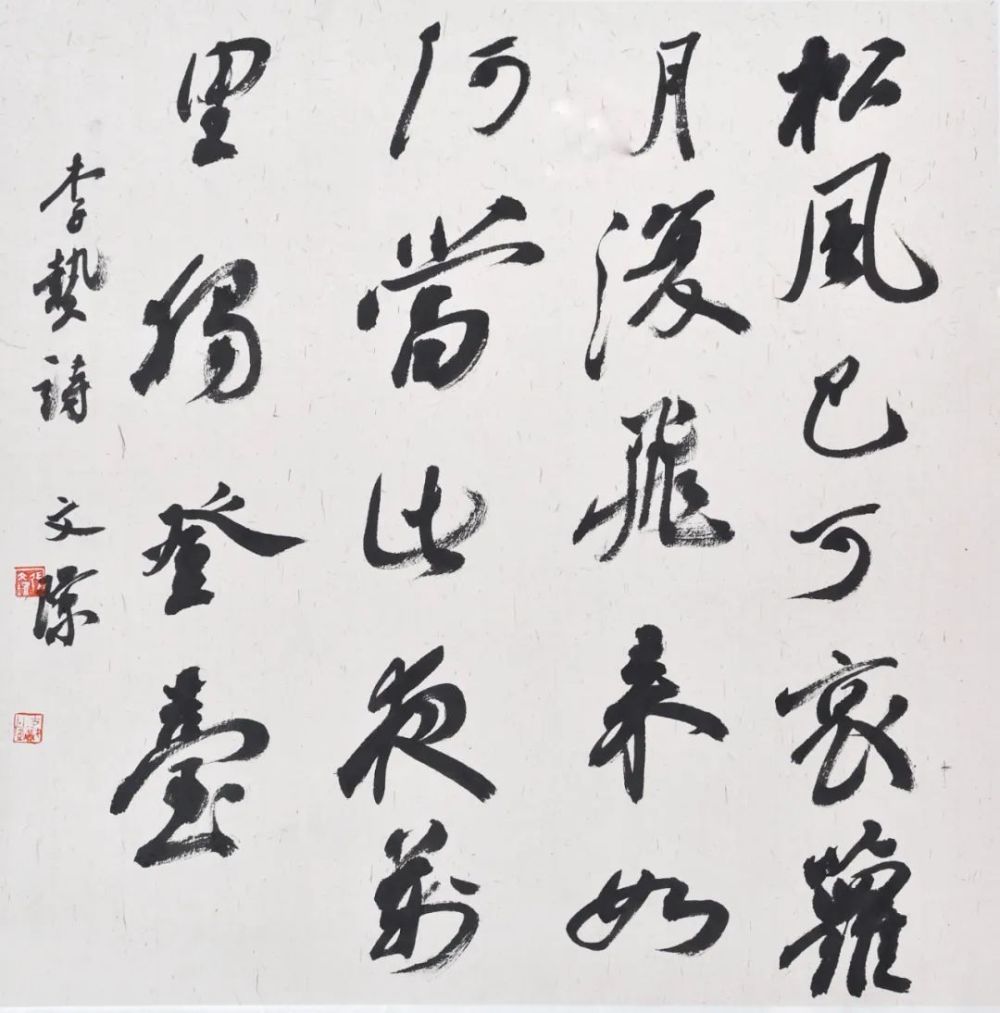 松風已可哀蘿
月復飛来如
何當此夜萬
里獨登臺
李贄詩 文